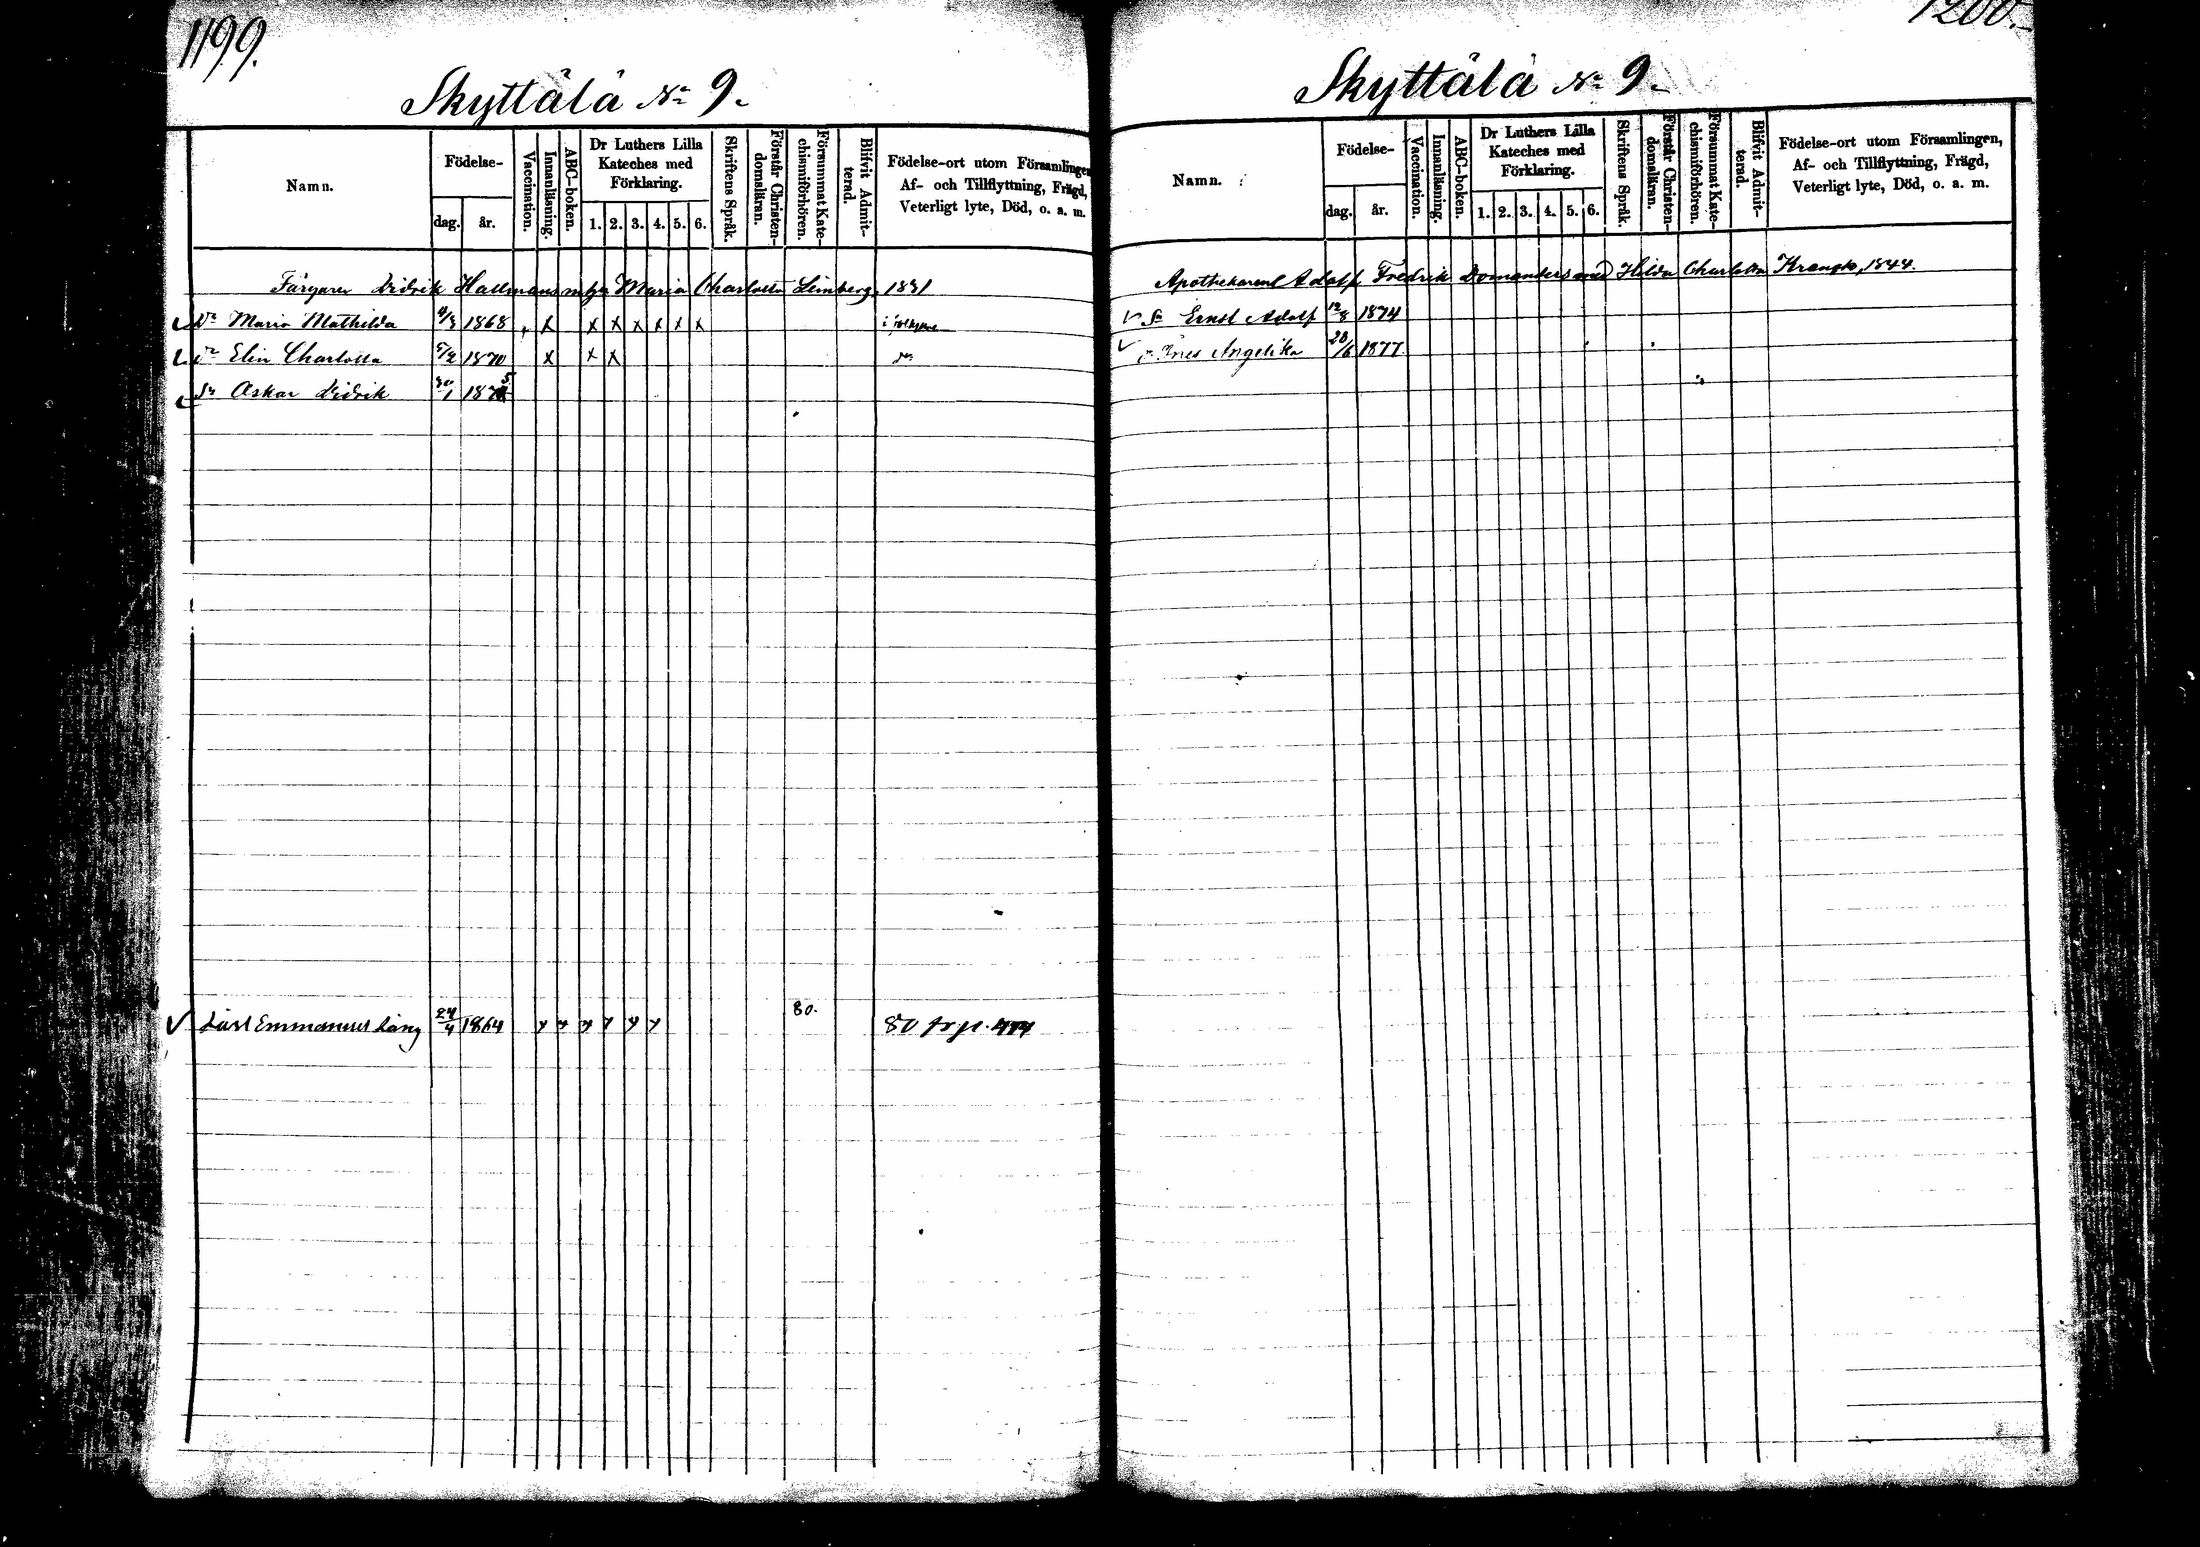 1199.
Skyttälä No 9.
Namn.
Födelse-
dag. år.
Vaccination.
Innanläsning.
ABC-boken.
Dr Luthers Lilla Kateches med Förklaring.
1. 2. 3. 4. 5. 6.
Skriftens Språk.
Förstår Christendomsläran.
Försummat Katechismiförhören.
Blifvit Admitterad.
Födelse-ort utom Församlingen,
Af- och Tillflyttning, Frägd,
Veterligt lyte, Död, o. a. m.
Färgaren Didrik Hallmans m hu Maria Charlotta Limberg, 1831
Dr Maria Mathilda 4/3 1868 x x x x x x x i folkskolan
Dr Elin Charlotta 5/2 1870 x x x do
Sn Oskar Didrik 30/1 1875
80.
Carl Emmanuel Lång 24/4 1864 80 fr p. 414
1200.
Skyttälä No 9.
Namn.
Födelse-
dag. år.
Vaccination.
Innanläsning.
ABC-boken.
Dr Luthers Lilla Kateches med Förklaring.
1. 2. 3. 4. 5. 6.
Skriftens Språk.
Förstår Christendomsläran.
Försummat Katechismiförhören.
Blifvit Admitterad.
Födelse-ort utom Församlingen,
Af- och Tillflyttning, Frägd,
Veterligt lyte, Död, o. a. m.
Apothekaren Adolf Fredrik Domanders med Hilda Charlotta 1844.
Sn Ernst Adolf 12/8 1874
Dr Ines Angelika 28/6 1877.